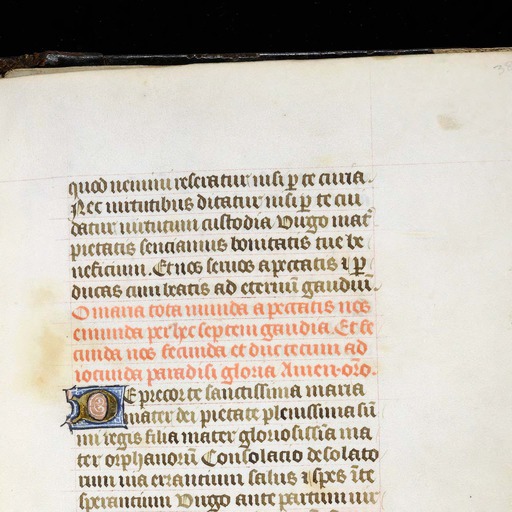 quod nemini reseratur nisi p te curia.
Nec uirtutibus ditatur nisi p te cui
datur uirtutum custodia Uirgo mat
pietatis senciamus bonitatis tue be
neficium. Et nos seruos a peccatis i p
ducas cum beatis ad eternu gaudiu.
O maria tota munda a peccatis nos
emunda per hec septem gaudia. Et fe
cunda nos fecunda et duc tecum ad
iocunda paradisi gloria Amen. oro.
OE precor te sanctissima maria
mater dei pietate plenissima su
mi regis filia mater gloriosissia ma
ter orphanoru Consolacio desolato
rum uia errantium salus i spes i te
sperantium Uirgo ante partum uir